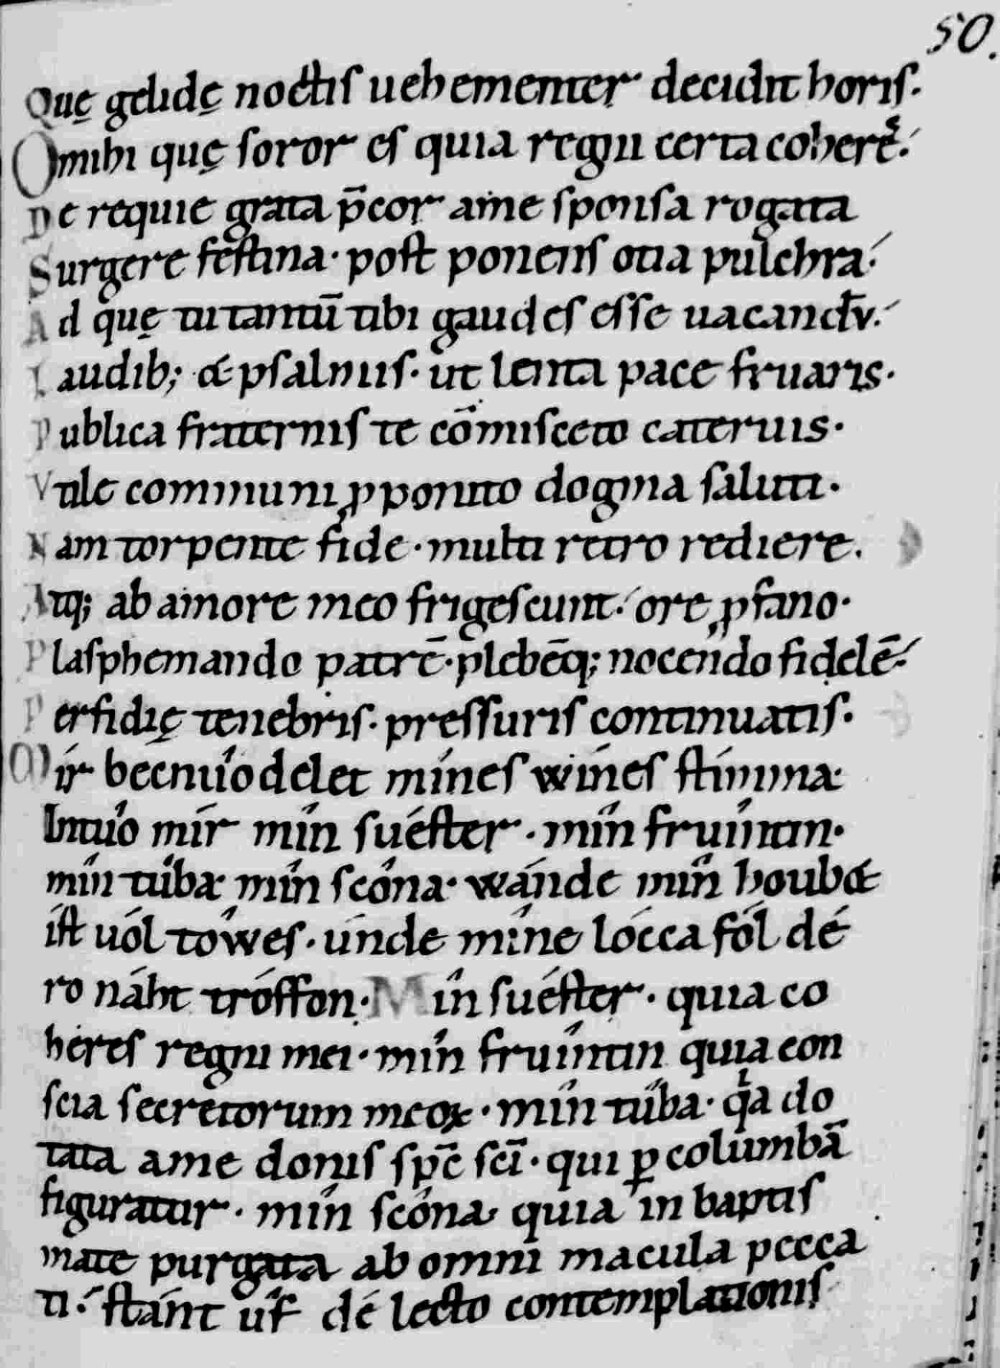 50.
Quę gelidę noctis uehementer decidit horis.
O mihi quę soror es quia regni certa coheres.
De requie grata p̄cor ame sponsa rogata
Surgere festina· post ponens otia pulchra·
Ad quę tu tantū tibi gaudes esse uacandū.
Laudib; & psalmis· ut lenta pace fruaris·
Publica fraternis te cōmisceto cateruis·
Vtile communi ꝓponito dogma saluti·
Nam torpente fide· multi retro rediere.
Atq; ab amore meo frigescunt· ore ꝓfano·
Plasphemando patrē· plebēq; nocendo fidelē·
Perfidię tenebris· pressuris continuatis·
Mír becnúodelet mínes wínes stímma·
Intúo mír mín suéster· mín frúintin·
mín túba· mín scóna· wánde mín houb&
íst uól tówes· únde míne lócca fól dé
ro náht tróffon· Mín suéster· quia co
heres regni mei· mín frúintin quia con
scia secretorum meoꝝ· mín túba· qͥa do
tata ame donis sp̄c sc̄i· qui ꝑ columbā
figuratur· mín scóna quia in baptis
mate purgata ab omni macula pecca
ti· stánt úf dé lecto contemplationis